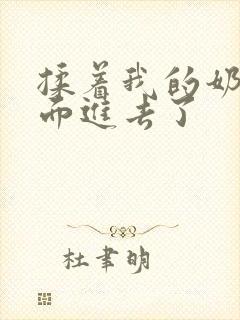 揉着我的奶
而进去了
杜聿明